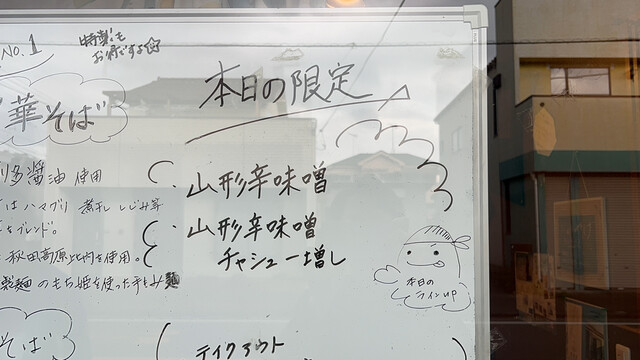 No.1
特製も
お得ですよ☆
華そば
本日の限定
多醤油 使用
は ハマグリ 煮干し しじみ等
をブレンド。
秋田高原比内を使用。
製麺のもち姫を使った手もみ麺
そば
・山形辛味噌
・山形辛味噌
チャシュー増し
本日の
ラインUP
テイクアウト